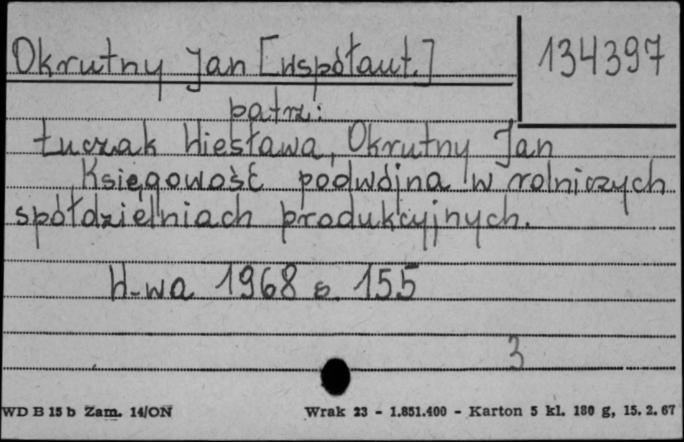 Okrutny Jan [współaut.]
134397
patrz:
Łuczak Wiesława, Okrutny Jan
Księgowość podwójna w rolniczych
spółdzielniach produkcyjnych.
W-wa 1968 s. 155
3
WD B 15 b Zam. 14/ON
Wrak 23 - 1.851.400 - Karton 5 kl. 180 g, 15. 2. 67